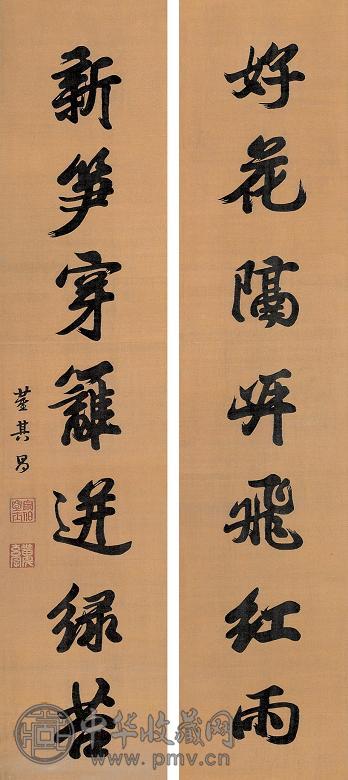 好花隔岸飛紅雨
新笋穿籬迸綠苔
董其昌
中华收藏网
www.pmv.cn